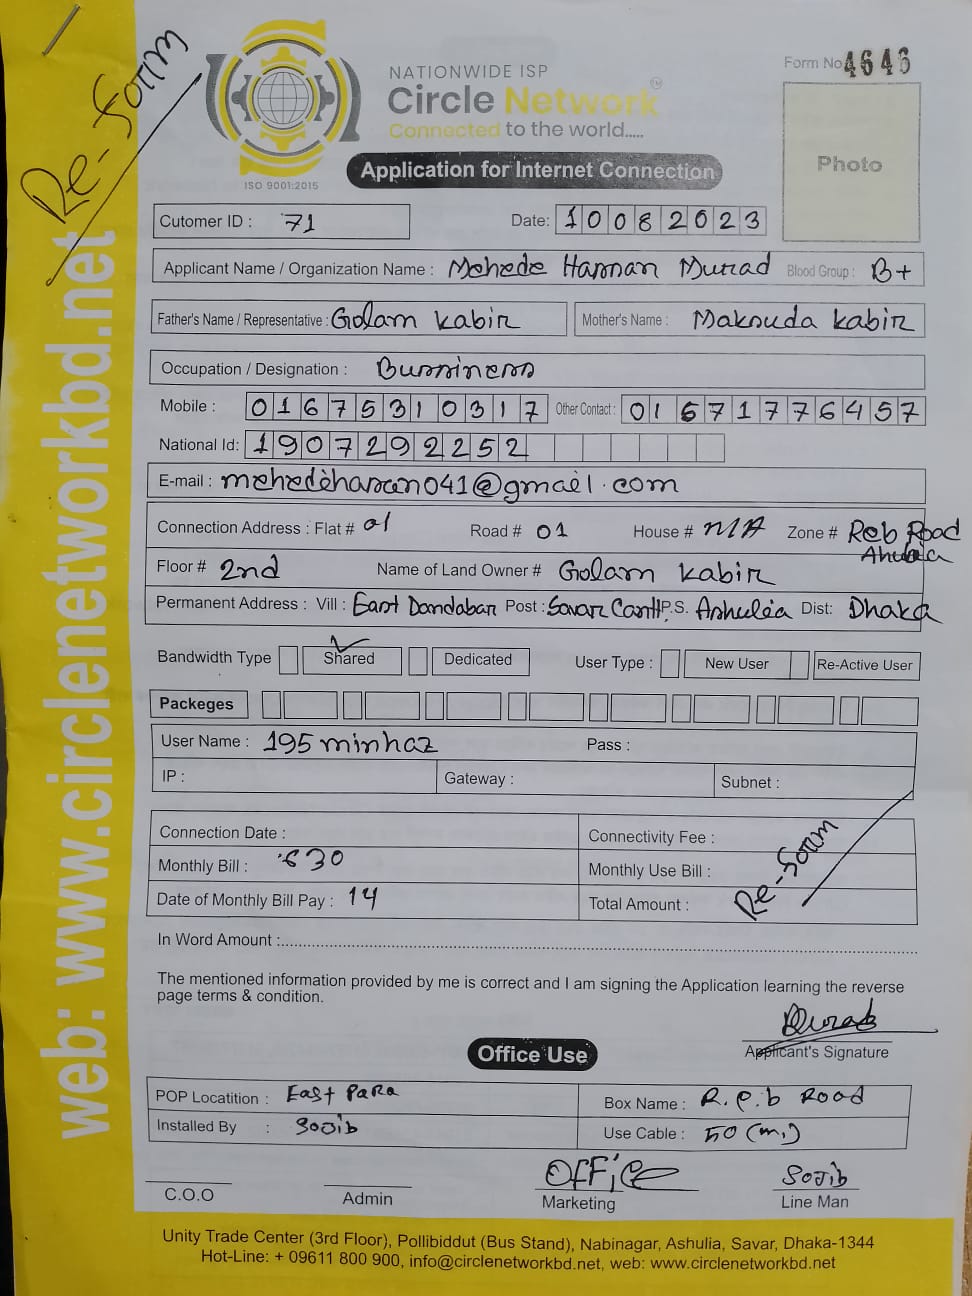 Re-form
NATIONWIDE ISP
Circle Network
Connected to the world.....
ISO 9001:2015
Application for Internet Connection
Form No 4646
Photo
Cutomer ID : 71
Date: 10082023
Applicant Name / Organization Name : Mehede Hannan Murad Blood Group : B+
Father's Name / Representative : Golam Kabir Mother's Name : Maksuda Kabir
Occupation / Designation : Bussiness
Mobile : 01675310317 Other Contact : 01671776457
National Id: 1907292252
E-mail : mehedihasan041@gmail.com
Connection Address : Flat # 01 Road # 01 House # N/A Zone # Reb Road
Ahulia
Floor # 2nd Name of Land Owner # Golam Kabir
Permanent Address : Vill : East Dandabar Post : Savar Cantt. P.S. Ashulia Dist: Dhaka
Bandwidth Type Shared Dedicated User Type : New User Re-Active User
Packeges
User Name : 195minhaz Pass :
IP : Gateway : Subnet :
Connection Date : Connectivity Fee :
Monthly Bill : 630 Monthly Use Bill :
Date of Monthly Bill Pay : 14 Total Amount :
Re-form
In Word Amount :
The mentioned information provided by me is correct and I am signing the Application learning the reverse
page terms & condition.
Murad
Applicant's Signature
Office Use
POP Locatition : East Para Box Name : R.e.b Road
Installed By : Sojib Use Cable : 50 (m.)
Office Sojib
C.O.O Admin Marketing Line Man
Unity Trade Center (3rd Floor), Pollibiddut (Bus Stand), Nabinagar, Ashulia, Savar, Dhaka-1344
Hot-Line: + 09611 800 900, info@circlenetworkbd.net, web: www.circlenetworkbd.net
web: www.circlenetworkbd.net